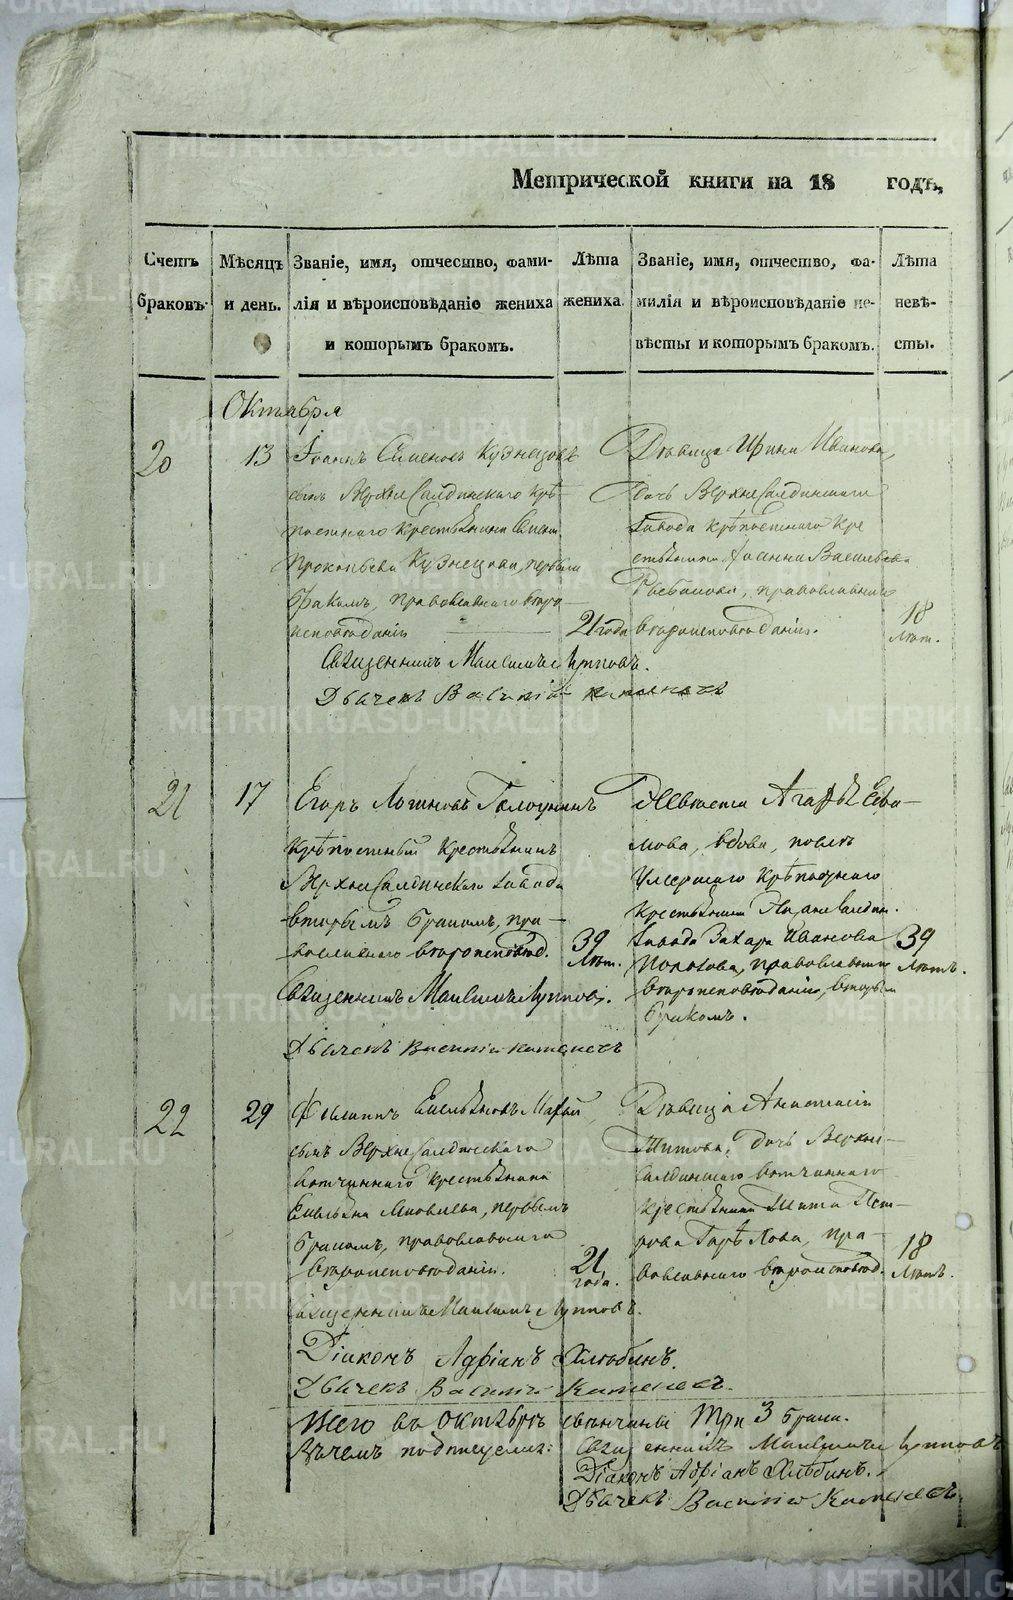 Метрической книги на 18 годъ,
Счетъ браковъ.
Мѣсяцъ и день.
Званіе, имя, отчество, фами-
лія и вѣроисповѣданіе жениха
и которымъ бракомъ.
Лѣта
жениха.
Званіе, имя, отчество, фа-
милія и вѣроисповѣданіе не-
вѣсты и которымъ бракомъ.
Лѣта
невѣ-
сты.
Октября
20
13
Іоаннъ Симеоновъ Кузнецовъ
сынъ Верхне Салдинскаго крѣ-
постнаго крестьянина
Прокопьева Кузнецова, первымъ
бракомъ, православнаго вѣро-
исповѣданія
21 года
Дѣвица Ирина Иванова,
дочь Верхне Салдинскаго
завода крѣпостнаго кре
стьянина Іоанна Васильева
православнаго
вѣроисповѣданія.
18
лѣт.
Священникъ Максимъ Лупповъ.
Дьячекъ Василій
21
17
Егоръ Логиновъ
крѣпостный крестьянинъ
Верхне Салдинскаго завода
вторымъ бракомъ, пра-
вославнаго вѣроисповѣд.
39
лѣт.
Невѣста Агафья
вдова, послѣ
умершаго крѣпостнаго
крестьянина
завода Захара Иванова
православнаго
вѣроисповѣданія, вторымъ
бракомъ.
39
лѣтъ.
Священникъ Максимъ Лупповъ.
Дьячекъ Василій
22
29
Филиппъ Емельяновъ
сынъ Верхне Салдинскаго
вотчиннаго крестьянина
Емельяна Яковлева, первымъ
бракомъ, православнаго
вѣроисповѣданія.
21
года.
Дѣвица Анастасія
Титова, дочь Верхне-
Салдинскаго вотчиннаго
крестьянина Тита Пет-
рова пра-
вославнаго вѣроисповѣд.
18
лѣтъ.
Священникъ Максимъ Лупповъ.
Діаконъ Адріанъ Хлѣбинъ.
Дьячекъ Василій
Всего въ Октябрѣ вѣнчаны три 3 брака.
Въ чемъ подписуемъ: Священникъ Максимъ Лупповъ
Діаконъ Адріанъ Хлѣбинъ.
Дьячекъ Василій
METRIKI.GASO-URAL.RU